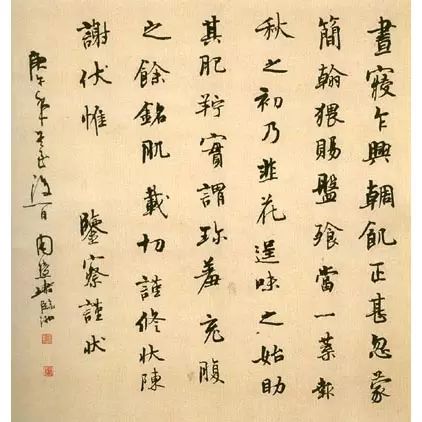 晝寢乍興輖飢正甚忽蒙
簡翰猥賜盤飧當一葉報
秋之初乃韭花逞味之始助
其肥羜實謂珍羞充腹
之餘銘肌載切謹修狀陳
謝伏惟 鑒察謹狀
庚午年